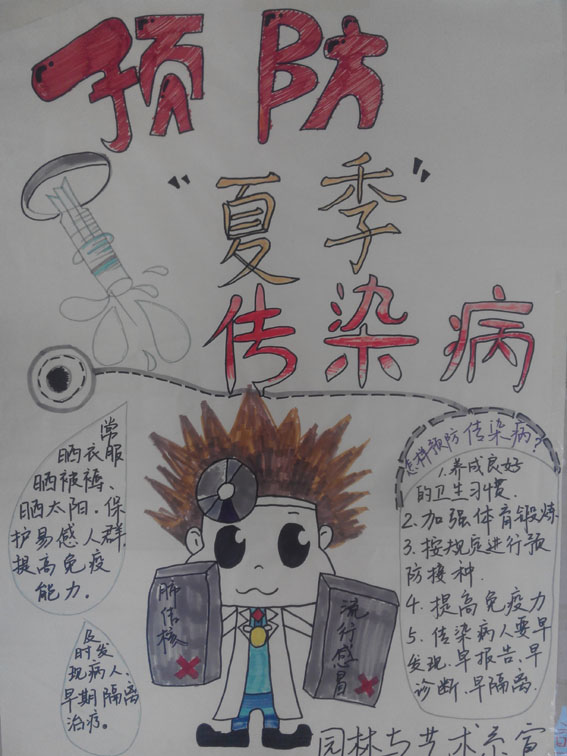 预防
“夏季”
传染病
常
晒衣服
晒被褥、
晒太阳.保
护易感人群
提高免疫
能力.
及
时发
现病人、
早期隔离
治疗。
肺结核
流行感冒
怎样预防传染病?
1.养成良好
的卫生习惯.
2.加强体育锻炼
3.按规定进行预
防接种.
4.提高免疫力
5.传染病人要早
发现.早报告.早
诊断.早隔离.
园林与艺术